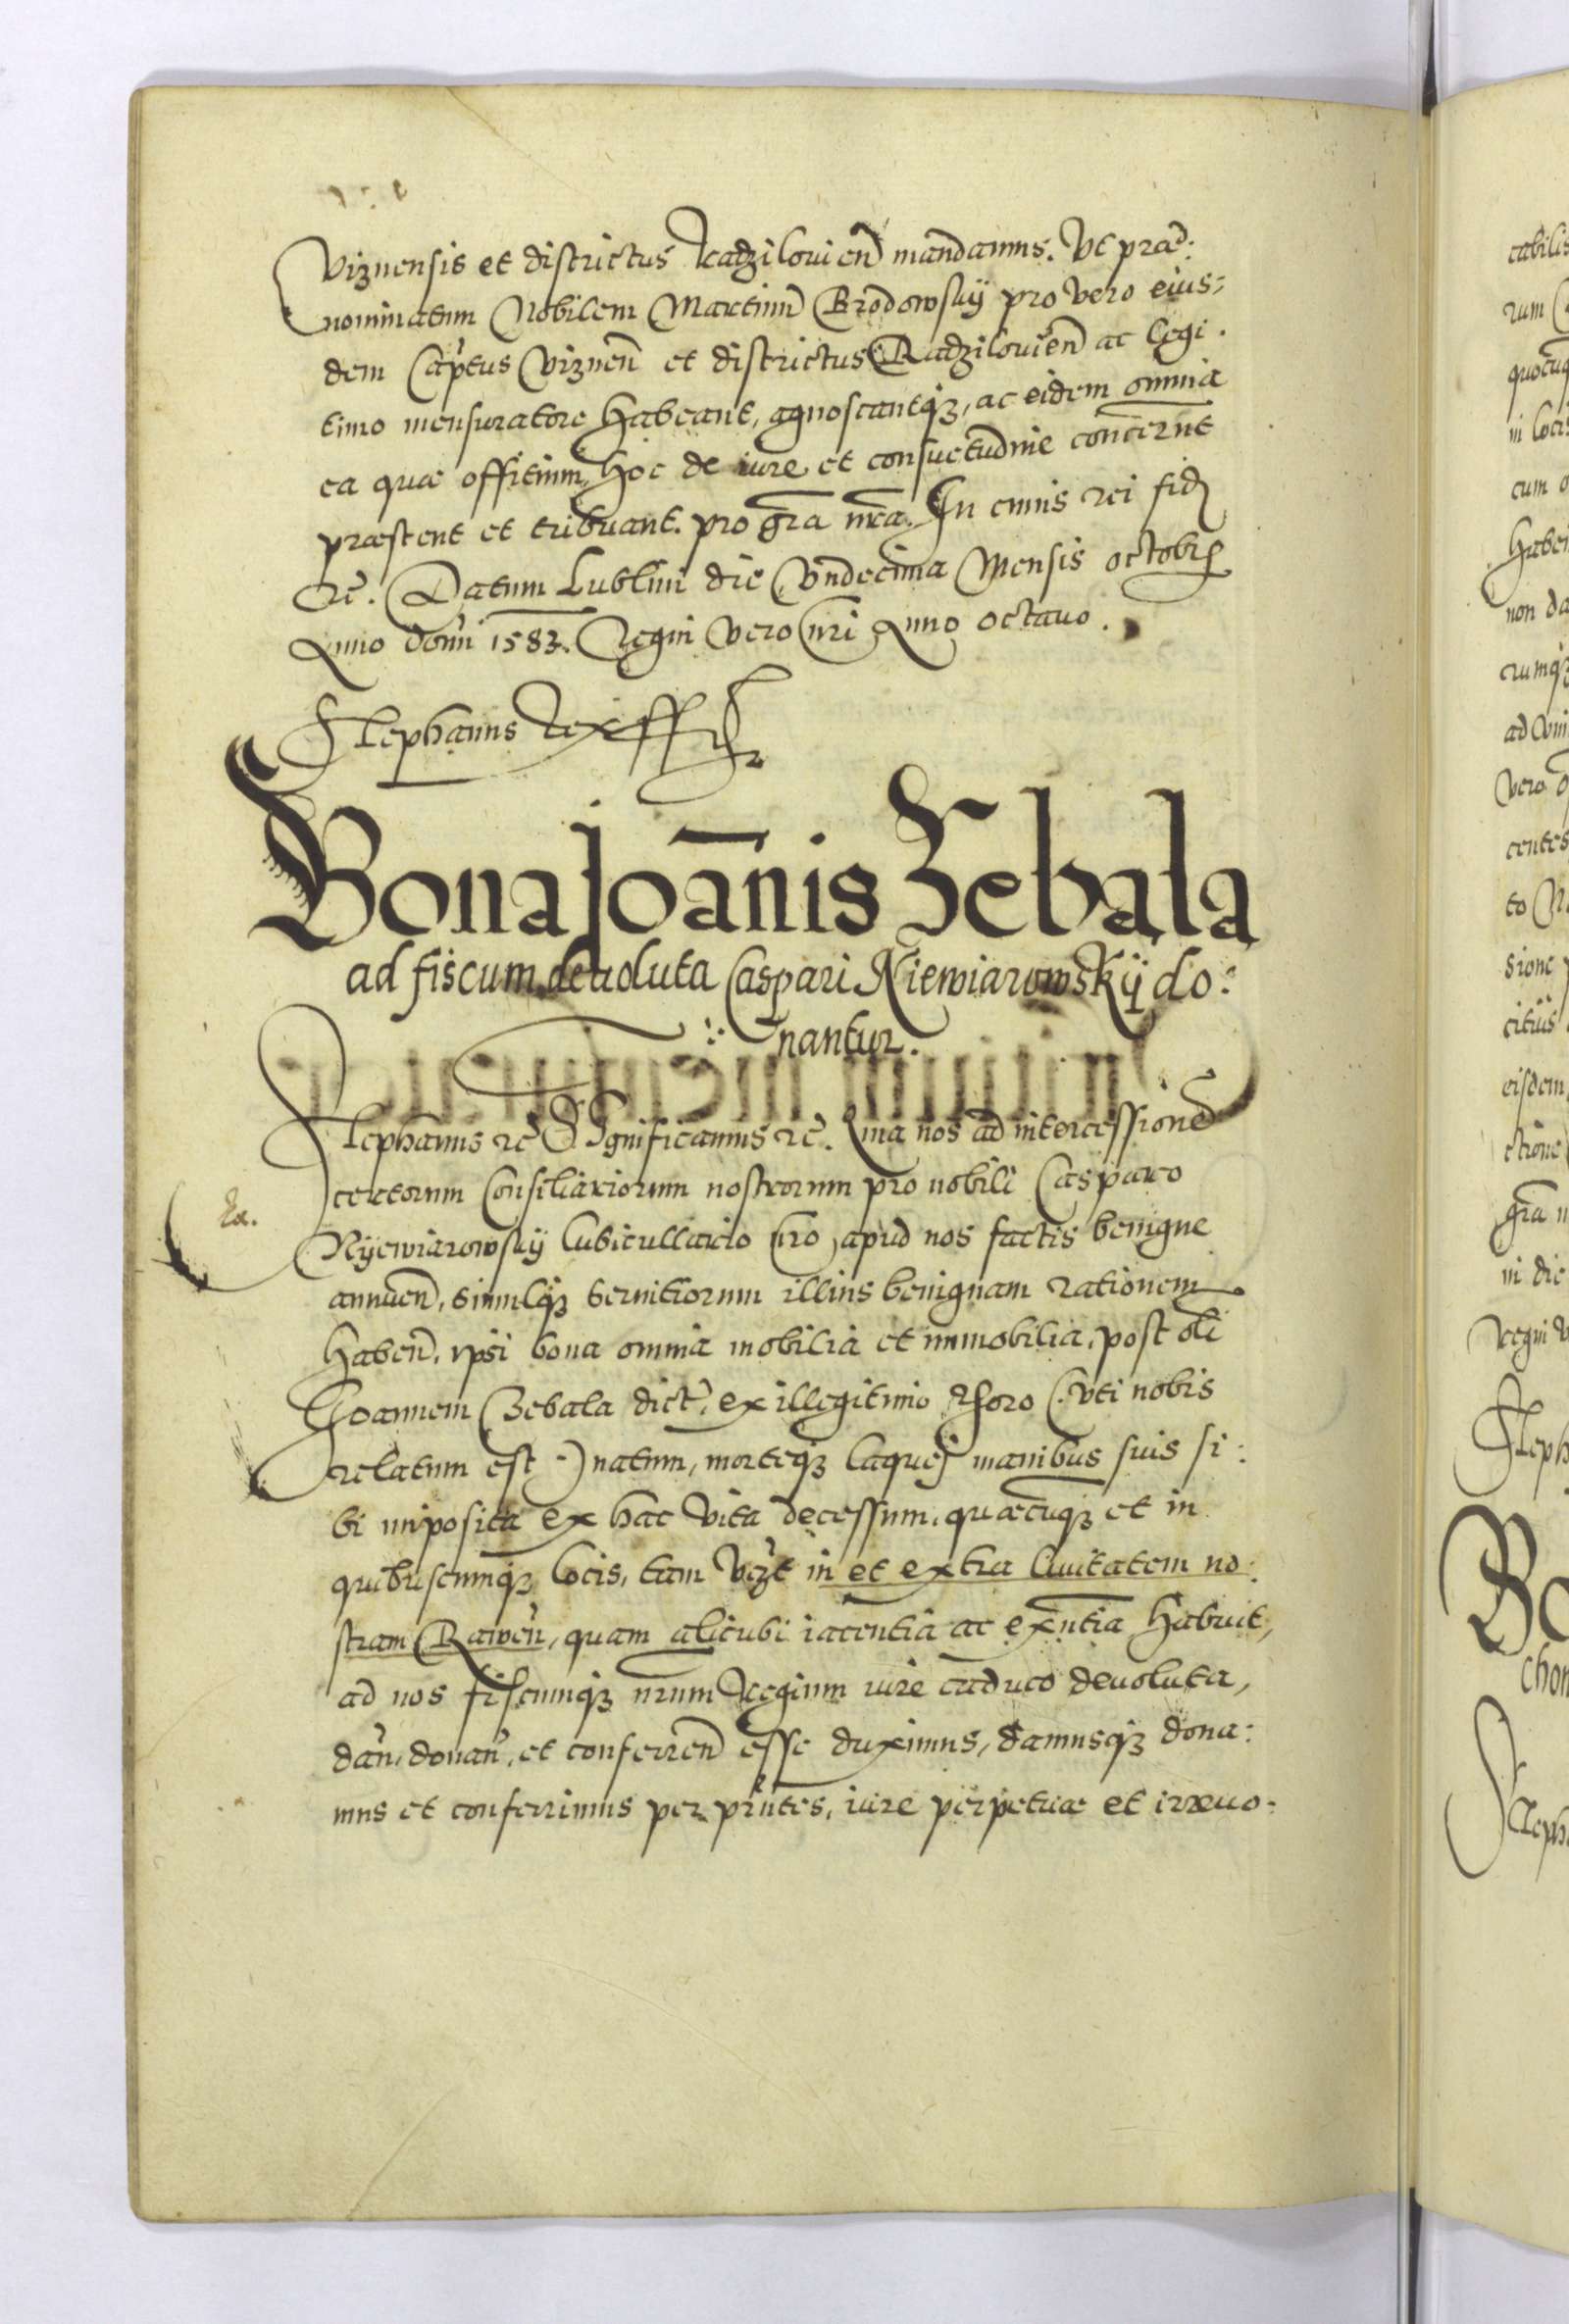 Viznensis et districtus Radzilovien̄ mandamus. Vt præ:
nominatum Nobilem Martinū Brodowskij pro vero eius:
dem Cap̄tus Viznen̄ et districtus Radzilovien̄ ac legi:
timo mensuratore habeant, agnoscantq3, ac eidem omnia
ea quæ offitium hoc de iure et consuetudine concernt
præstent et tribuant. pro gr̄a nr̄a. In cuius rei fidē
Datum Lublini die Vndecima Mensis octobris
Anno domi 1583. Regni vero nr̄i Anno octavo.
Stephanus Rex ss̄
Bona Joānis Zebala
ad fiscum devoluta Caspari Niewiarowskij do:
nantur.
Stephanus rē Significamus rē. Quia nos ad intercessionē
certorum Consiliariorum nostrorum pro nobili Casparo
Ra.
Nyewiarowskij Cubicullario nr̄o, apud nos factis benigne
annuen̄, simulq3 servitiorum illius benignam rationem
haben̄, ipsi bona omnia mobilia et immobilia, post oli
Joannem Zebala dict̄, ex illegitimo thoro (: vti nobis
relatum est :) natum, morteq3 laquej manibus suis si:
bi imposita ex hac vita decessum, quæcūq3 et in
quibuscumq3 locis, tam vz̄t in et extra Civitatem no:
stram Rawen̄, quam alicubi iacentia ac exn̄tia habuit,
ad nos fiscumq3 nr̄um Regium iure caduco devoluta,
dan̄, donan̄, et conferren̄ esse duximus, damusq3 dona:
mus et conferrimus per pr̄ntes, iure perpetuæ et irrevo: